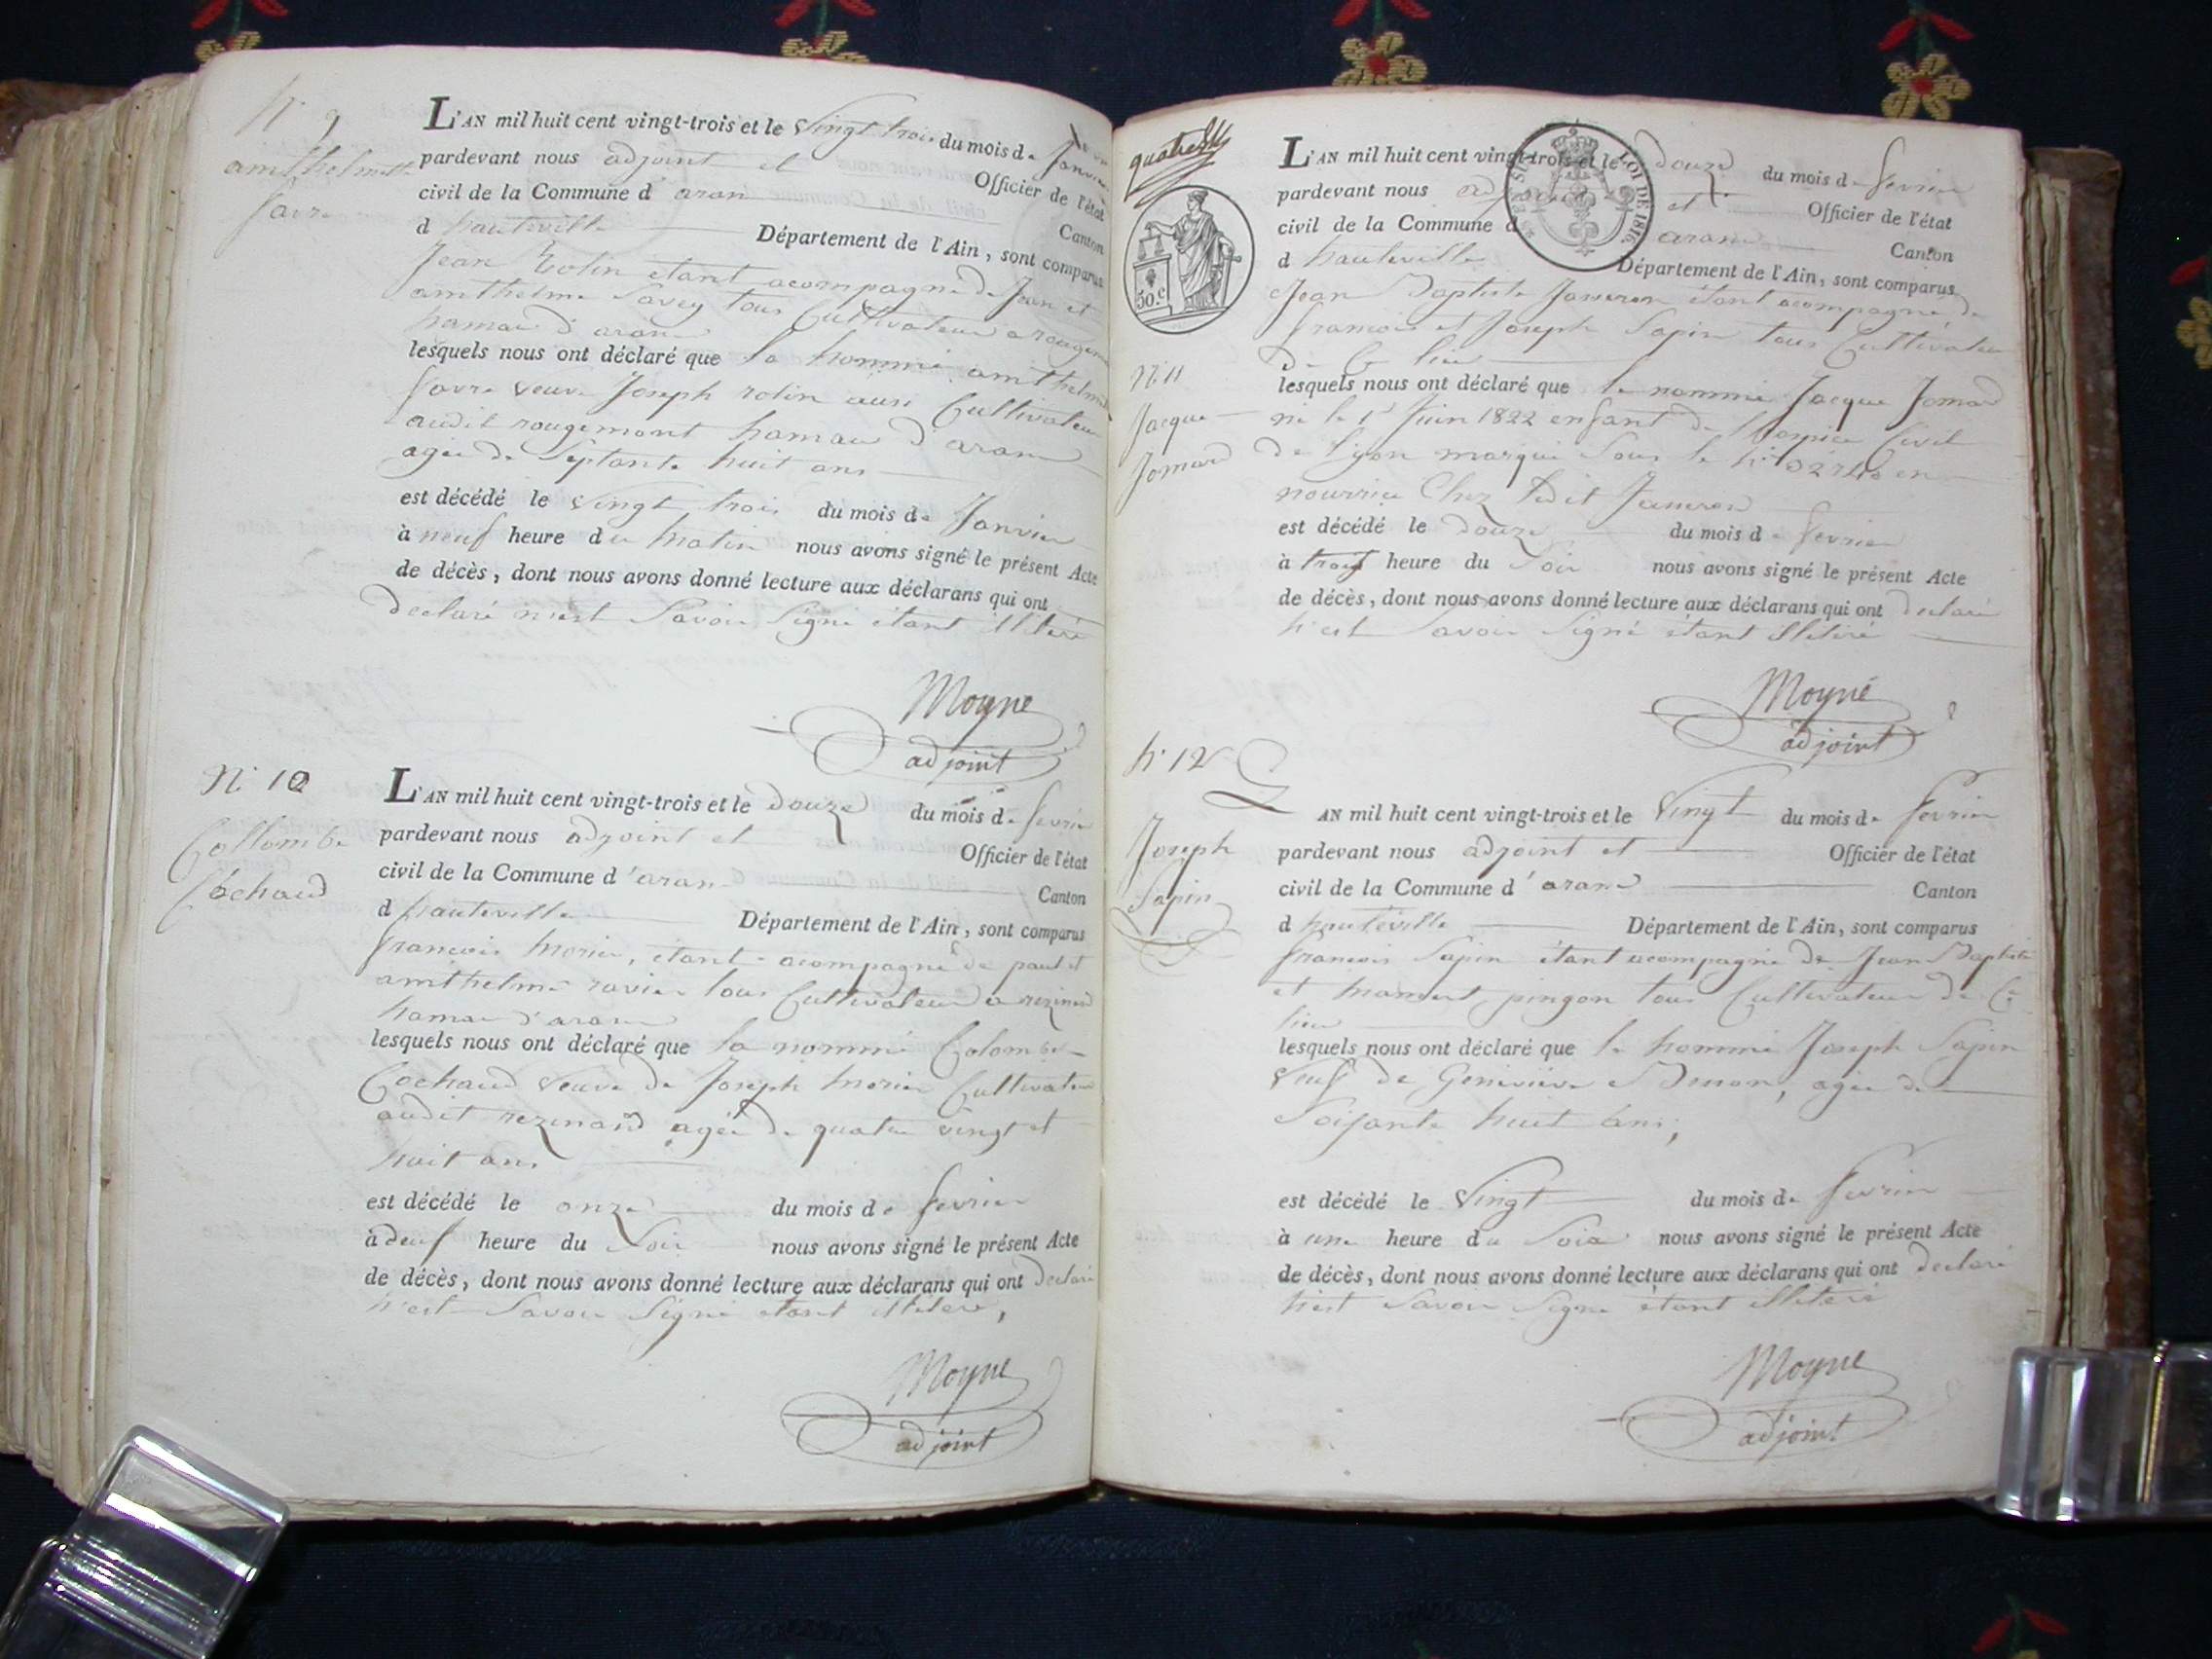 N° 9
amthelmette
favre
L'AN mil huit cent vingt-trois et le vingt trois du mois de Janvier
pardevant nous adjoint et Officier de l'état
civil de la Commune d'aran Canton
d hauteville Département de l'Ain, sont comparus
Jean Rolin etant acompagné de Jean et
amthelme Savey tous Cultivateur a rougem
hamau d'aran
lesquels nous ont déclaré que la nommé amthelme
favre veuve Joseph rolin aussi Cultivateur
audit rougemont hamau d'aran
agée de Septante huit ans
est décédé le vingt trois du mois de Janvier
à neuf heure du matin nous avons signé le présent Acte
de décès, dont nous avons donné lecture aux déclarans qui ont
declaré n'est Savoir Signé étant illiteré
Moyne
adjoint
N° 10
Collombe
Cochaud
L'AN mil huit cent vingt-trois et le douze du mois de fevrier
pardevant nous adjoint et Officier de l'état
civil de la Commune d'aran Canton
d hauteville Département de l'Ain, sont comparus
francois morier, étant acompagné de paul et
amthelme ravier tous Cultivateur a rezinand
hamau d'aran
lesquels nous ont déclaré que la nommé Colombe
Cochaud veuve de Joseph morier Cultivateur
audit rezinand agée de quatre vingt et
huit ans
est décédé le onze du mois de fevrier
à deuf heure du Soir nous avons signé le présent Acte
de décès, dont nous avons donné lecture aux déclarans qui ont declaré
n'est Savoir Signé etant illiteré,
Moyne
adjoint
quatre
50 c
LOI DE 1816
L'AN mil huit cent vingt-trois et le douze du mois de fevrier
pardevant nous adjoint et Officier de l'état
civil de la Commune d aran Canton
d hauteville Département de l'Ain, sont comparus
Jean Baptiste Janeron étant acompagné de
francois et Joseph Sapin tous Cultivateur
de Ce lieu
N° 11
Jacque
Jomard
lesquels nous ont déclaré que le nommé Jacque Jomard
né le 1er Juin 1822 enfant de l'hospice Civil
de Lyon marqué Sous le n° en
nourrice Chez ledit Janeron
est décédé le douze du mois de fevrier
à trois heure du Soir nous avons signé le présent Acte
de décès, dont nous avons donné lecture aux déclarans qui ont declaré
n'est Savoir Signé étant illiteré
Moyne
adjoint
N° 12
Joseph
Sapin
L AN mil huit cent vingt-trois et le vingt du mois de fevrier
pardevant nous adjoint et Officier de l'état
civil de la Commune d'aran Canton
d hauteville Département de l'Ain, sont comparus
francois Sapin étant acompagné de Jean Baptiste
et mamert pingon tous Cultivateur de Ce
lieu
lesquels nous ont déclaré que le nommé Joseph Sapin
veuf de Genevieve agée de
Soixante huit ans;
est décédé le vingt du mois de fevrier
à une heure du Soir nous avons signé le présent Acte
de décès, dont nous avons donné lecture aux déclarans qui ont declaré
n'est Savoir Signé étant illiteré
Moyne
adjoint